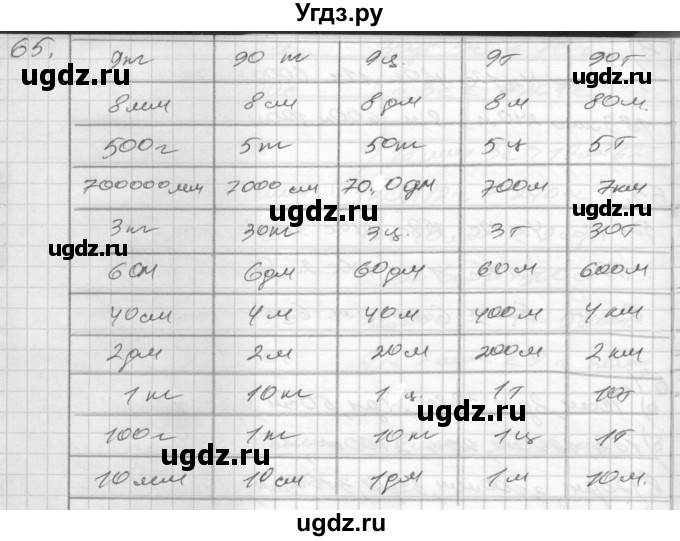 Угдз.ру
65. 9 кг 90 кг 9 ц. 9 т 90 т
8 мм 8 см 8 дм 8 м 80 м.
500 г 5 кг 50 кг 5 ц 5 т
700000 мм 7000 см 70,0 дм 700 м 7 км
3 кг 30 кг 3 ц. 3 т 30 т
6 см 6 дм 60 дм 60 м 600 м
40 см 4 м 40 м 400 м 4 км
2 дм 2 м 20 м 200 м 2 км
1 кг 10 кг 1 ц. 1 т 10 т
100 г 1 кг 10 кг 1 ц 1 т
10 мм 10 см 1 дм 1 м 10 м.
ugdz.ru
ugdz.ru
ugdz.ru
ugdz.ru
ugdz.ru
ugdz.ru
ugdz.ru
ugdz.ru
ugdz.ru